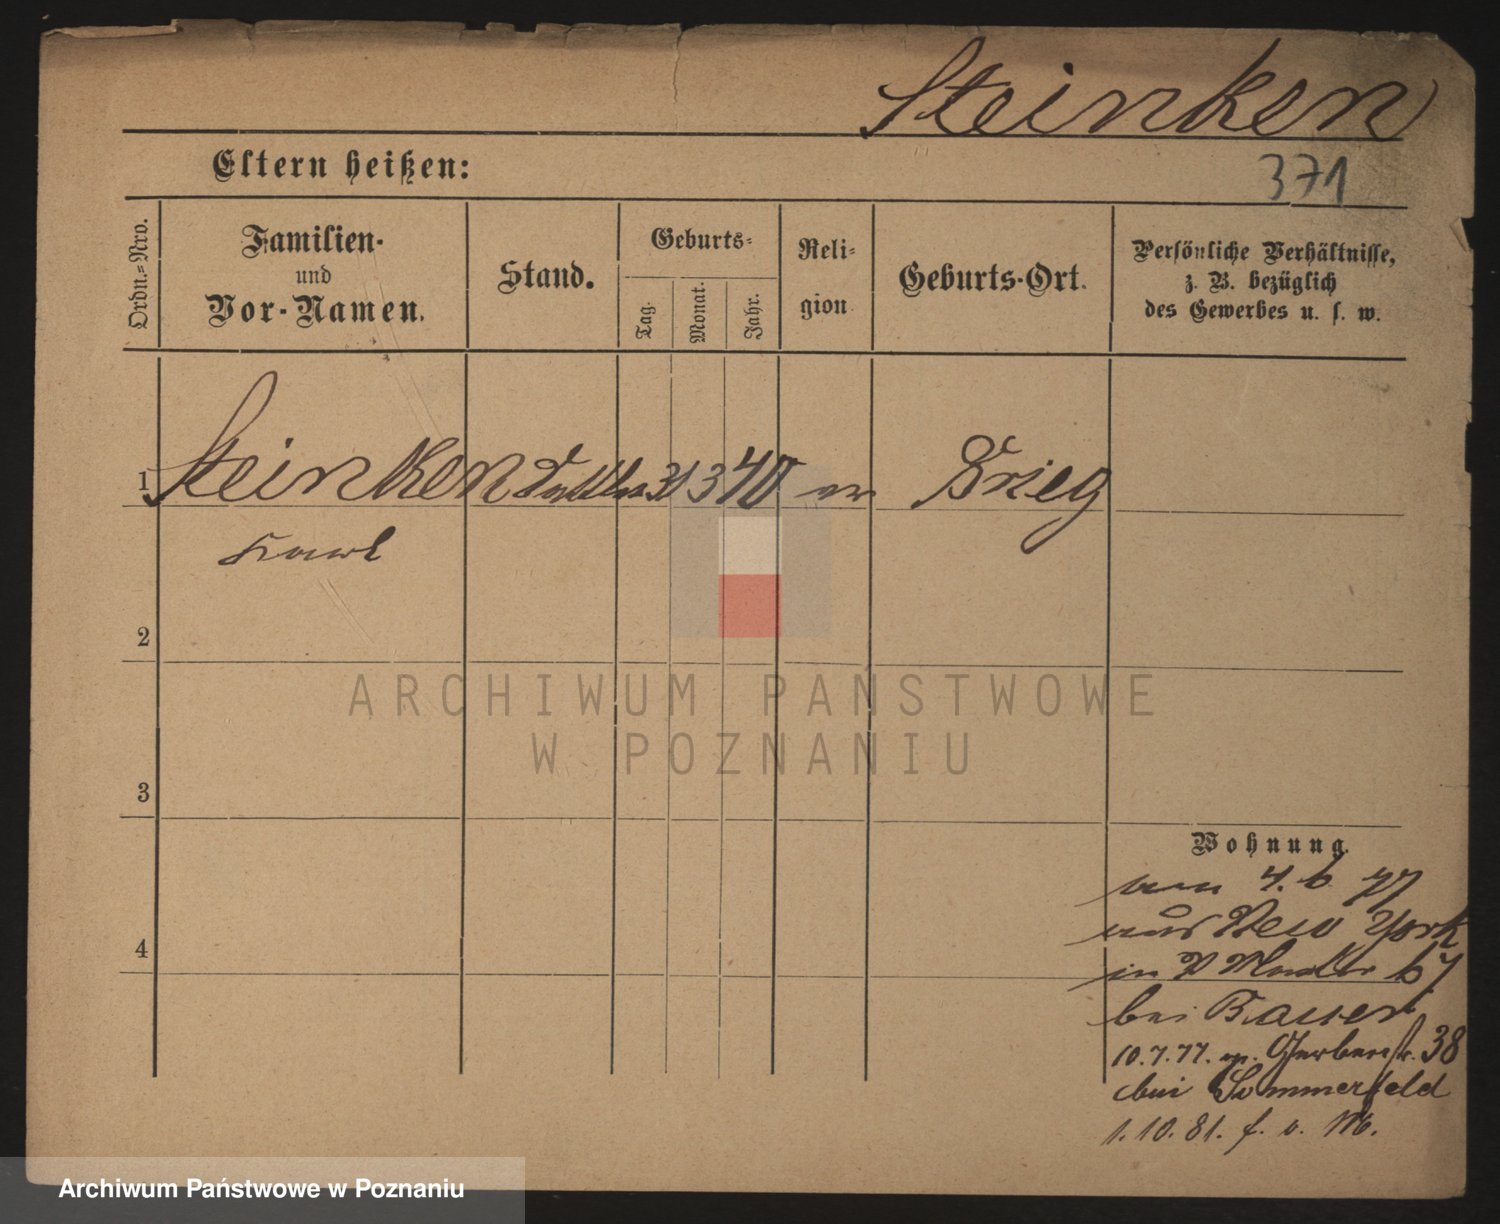 Steinken
371
Eltern heißen:
Ordn.=Nro.
Familien-
und
Vor-Namen.
Stand.
Geburts-
Tag.
Monat.
Jahr.
Reli-
gion
Geburts-Ort.
Persönliche Verhältnisse,
z. B. bezüglich
des Gewerbes u. s. w.
1 Steinken Sattler 31 3 40 ev Brieg
Karl
2
ARCHIWUM PAŃSTWOWE
W POZNANIU
3
Wohnung.
am 4. 6 77
aus New York
4
in 67
bei Bauer
10.7.77. Gerberstr. 38
bei Sommerfeld
1. 10. 81. f. v. M.
Archiwum Państwowe w Poznaniu